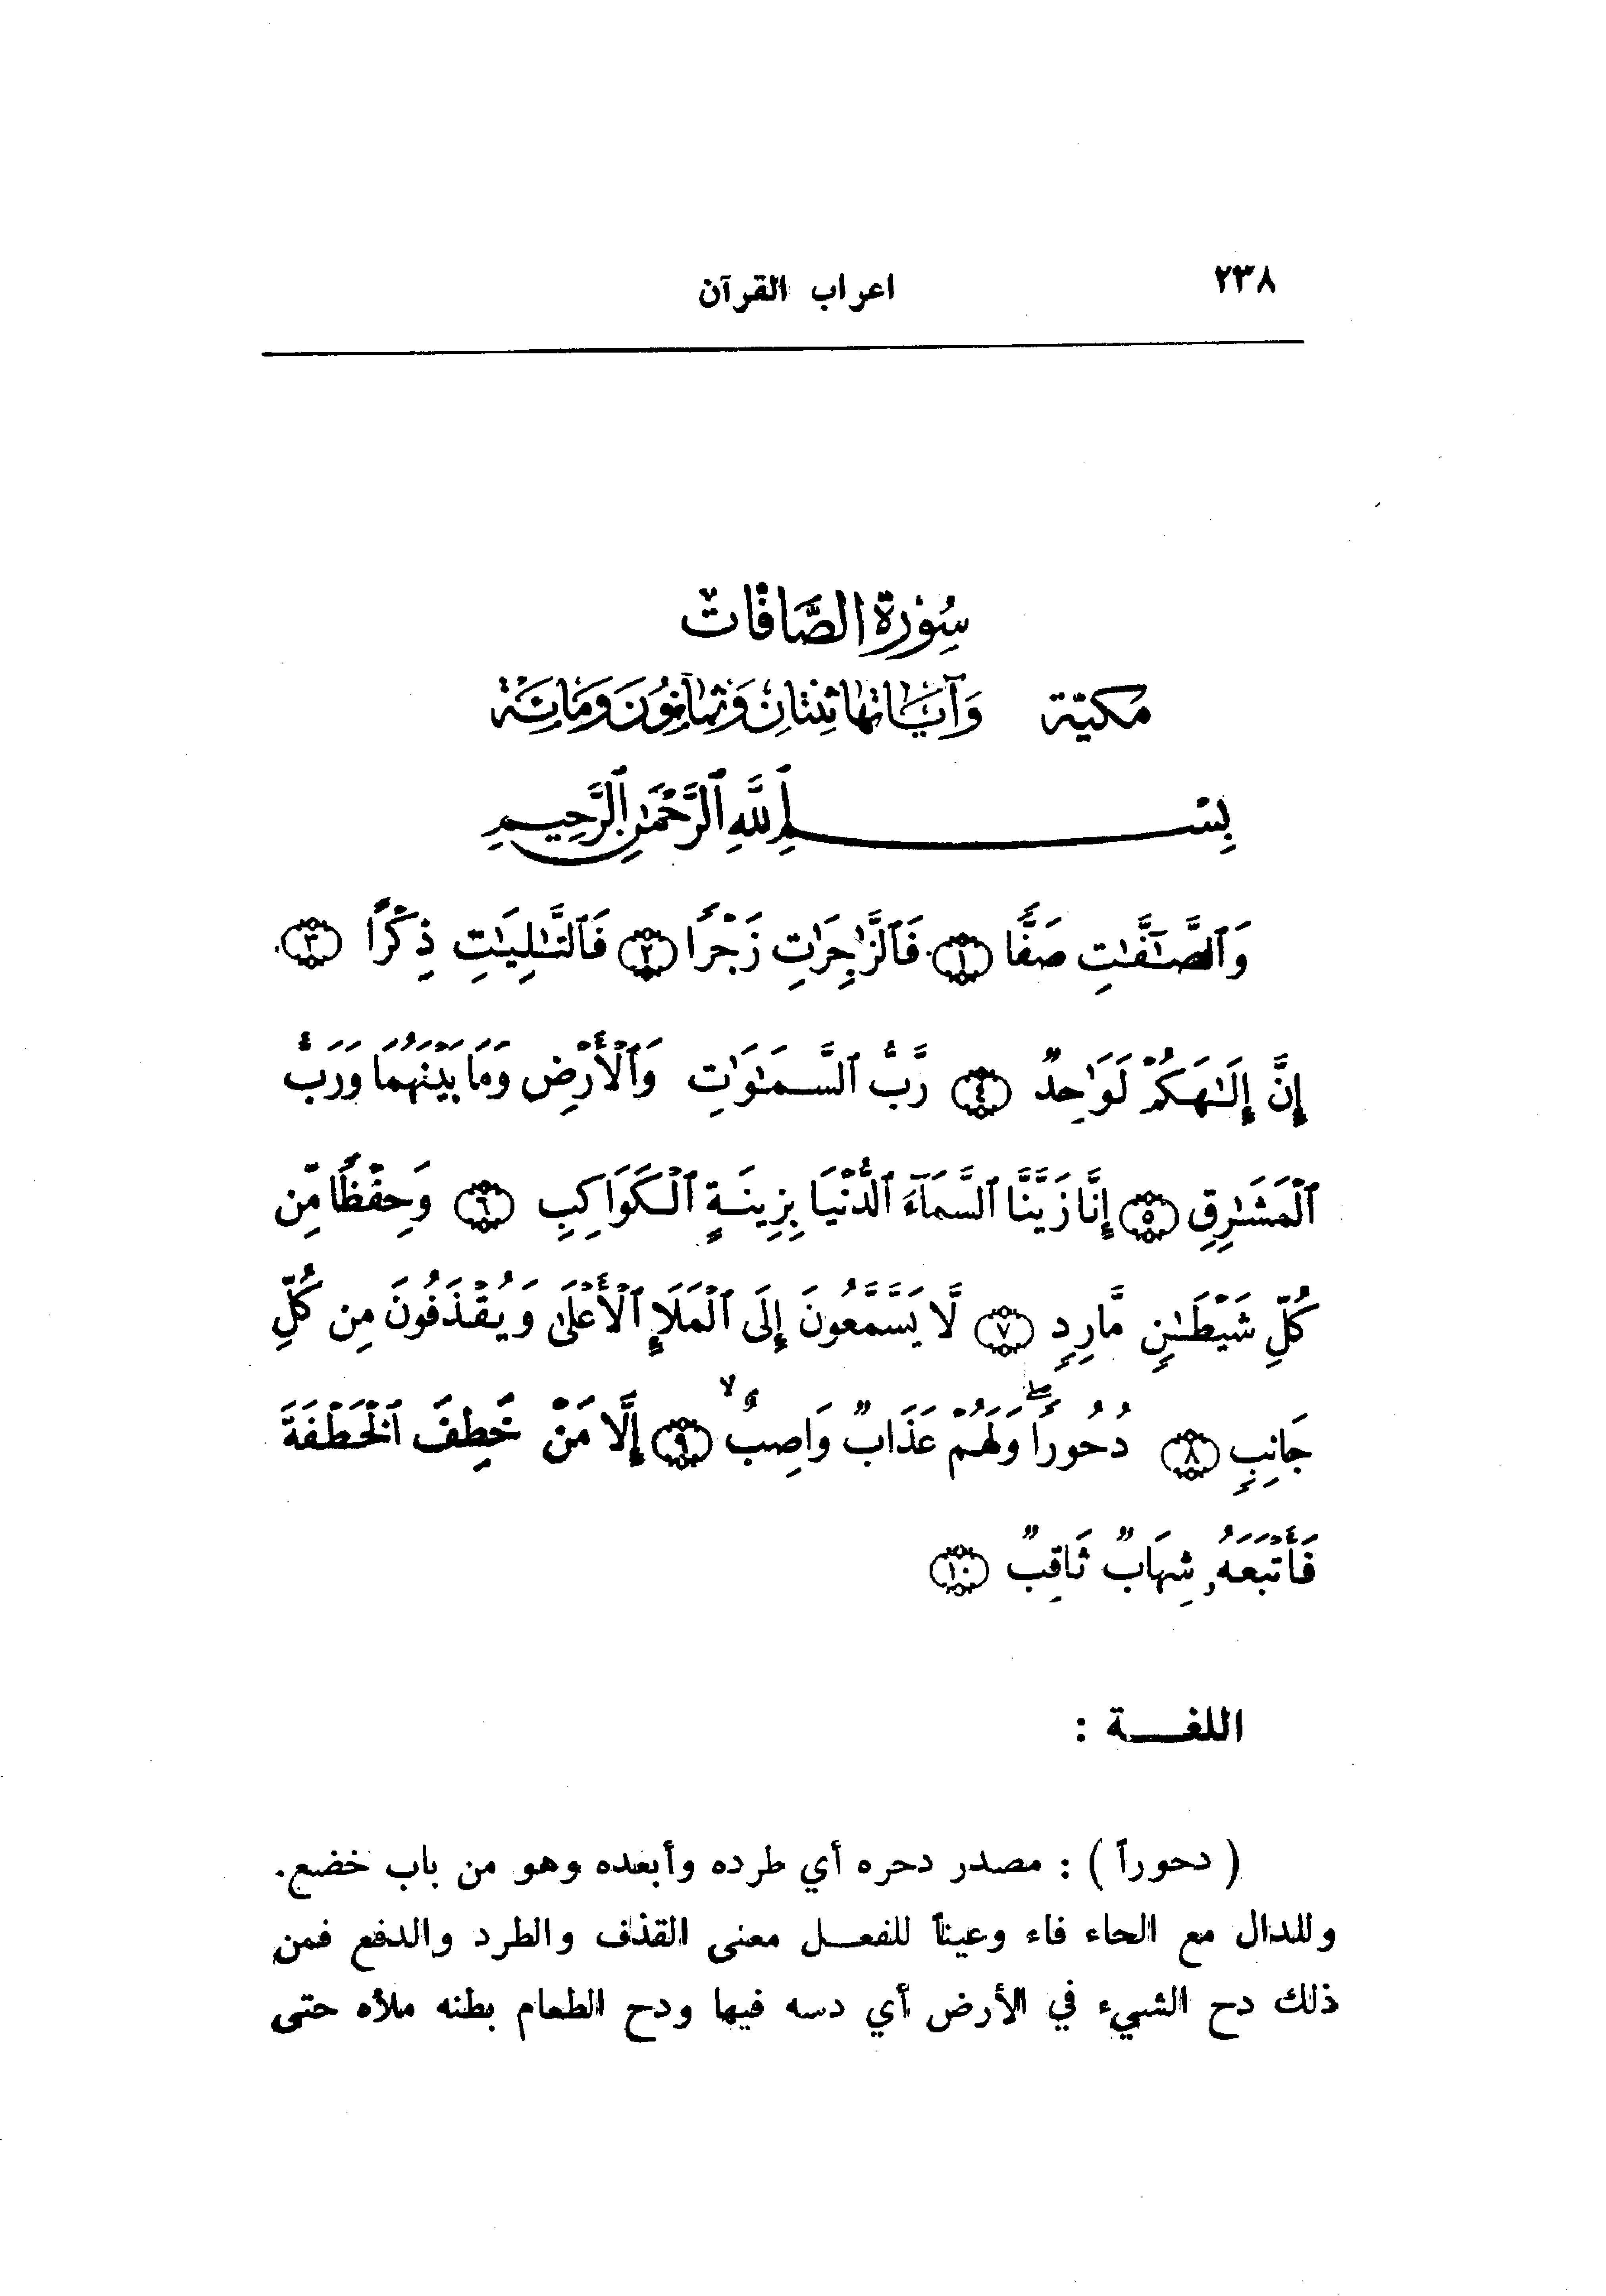 ٢٣٨
اعراب القرآن
سُورَة الصَّافَات
مَكيّة وَآيَاتهَا ثِنتَانِ وَثَمَانُونَ وَمَائَة
بِسْمِ ٱللَّهِ ٱلرَّحْمَٰنِ ٱلرَّحِيمِ
وَٱلصَّٰٓفَّٰتِ صَفًّا ١ فَٱلزَّٰجِرَٰتِ زَجْرًا ٢ فَٱلتَّٰلِيَٰتِ ذِكْرًا ٣
إِنَّ إِلَٰهَكُمْ لَوَٰحِدٌ ٤ رَّبُّ ٱلسَّمَٰوَٰتِ وَٱلْأَرْضِ وَمَا بَيْنَهُمَا وَرَبُّ
ٱلْمَشَٰرِقِ ٥ إِنَّا زَيَّنَّا ٱلسَّمَآءَ ٱلدُّنْيَا بِزِينَةٍ ٱلْكَوَاكِبِ ٦ وَحِفْظًا مِّن
كُلِّ شَيْطَٰنٍ مَّارِدٍ ٧ لَّا يَسَّمَّعُونَ إِلَى ٱلْمَلَإِ ٱلْأَعْلَىٰ وَيُقْذَفُونَ مِن كُلِّ
جَانِبٍ ٨ دُحُورًا ۖ وَلَهُمْ عَذَابٌ وَاصِبٌ ۙ ٩ إِلَّا مَنْ خَطِفَ ٱلْخَطْفَةَ
فَأَتْبَعَهُۥ شِهَابٌ ثَاقِبٌ ١٠
اللغـــة :
( دحوراً ) : مصدر دحره أي طرده وأبعده وهو من باب خضع.
وللدال مع الحاء فاء وعيناً للفعــل معنى القذف والطرد والدفع فمن
ذلك دح الشيء في الأرض أي دسه فيها ودح الطعام بطنه ملأه حتى